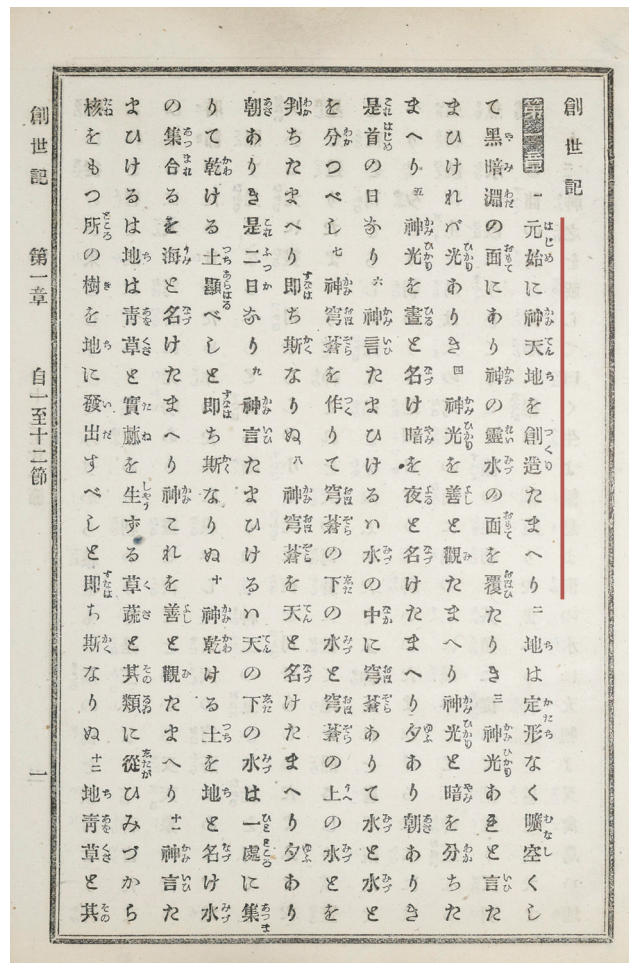 創世記
第一章 一 元始に神天地を創造たまへり 二 地は定形なく曠空くし
て黑暗淵の面にあり神の靈水の面を覆たりき 三 神光あれと言た
まひけれバ光ありき 四 神光を善と觀たまへり神光と暗を分ちた
まへり 五 神光を晝と名け暗を夜と名けたまへり夕あり朝ありき
是首の日なり 六 神言たまひけるハ水の中に穹蒼ありて水と水と
を分つべし 七 神穹蒼を作りて穹蒼の下の水と穹蒼の上の水とを
判ちたまへり即ち斯なりぬ 八 神穹蒼を天と名けたまへり夕あり
朝ありき是二日なり 九 神言たまひけるハ天の下の水は一處に集
りて乾ける土顯べしと即ち斯なりぬ 十 神乾ける土を地と名け水
の集合るを海と名けたまへり神これを善と觀たまへり 十一 神言た
まひけるは地は靑草と實蓏を生ずる草蔬と其類に從ひみづから
核をもつ所の樹を地に發出すべしと即ち斯なりぬ 十二 地靑草と其
創世記 第一章 自一至十二節 一